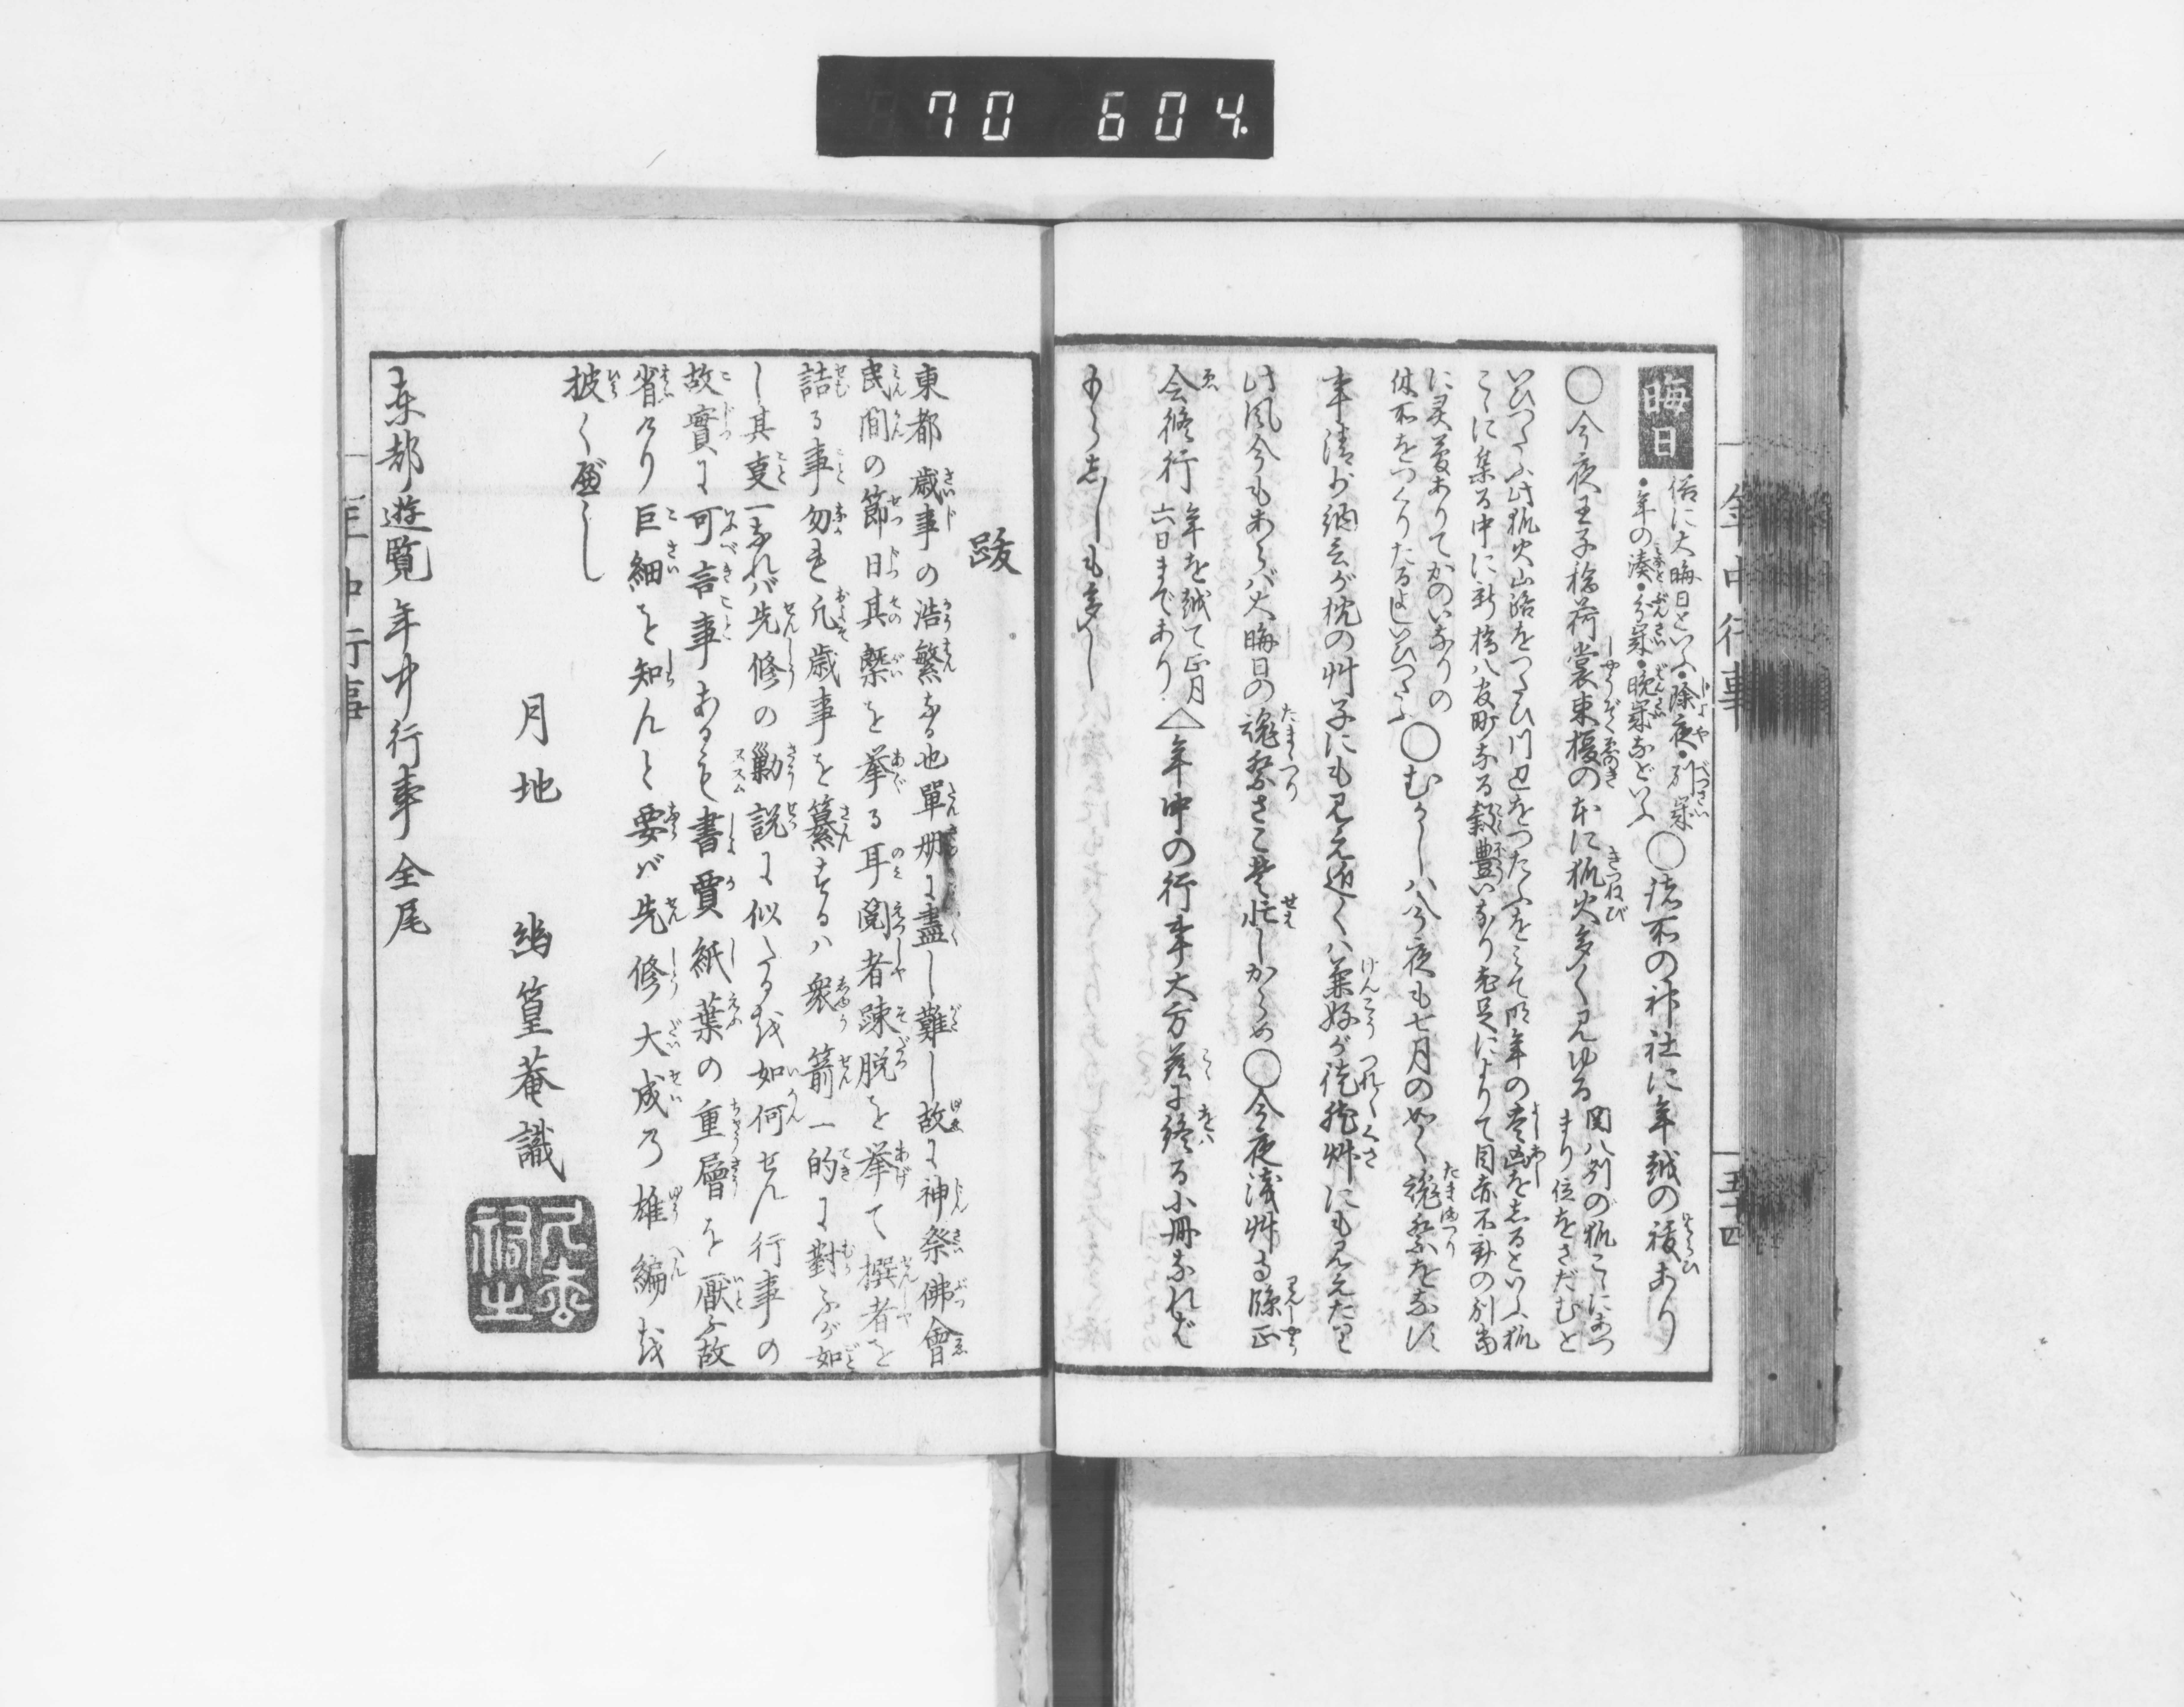 70 604.
年中行事
五十四
晦日
俗に大晦日といふ・除夜・別歳
・年の湊・分歳・晩歳などいふ
〇諸所の神社に年越の祓あり
〇今夜王子稲荷裳束榎の本に狐火多く見ゆる
関八州の狐こゝにあつ
まり位をさだむと
いひつたふ此狐火山路をつたひ川辺をつたふをみて明年の豊凶をしるといふ狐
こゝに集る中に
に灵夢ありてかのいなりの
休所をつくりたるよしいひつたふ
〇むかしハ今夜も七月の如く魂祭をなす
事清少納言が枕の艸子にも見え近くハ兼好が徒然艸にも見えたり
此風今もあらバ大晦日の魂祭さこそ忙しからめ
〇今夜浅艸寺修正
会修行
年を越て正月
六日まであり
△年中の行事大方茲に終る小冊なれば
もらしゝも多し
跋
東都歳事の浩繁なる也單册に盡し難し故に神祭佛會
民間の節日其槩を挙る耳閲者疎脱を挙て撰者を
詰る事勿れ凡歳事を纂するハ衆箭一的に對ふが如
し其叓一なれバ先修の勦説に似たるを如何せん行事の
故實に可言事あるも書賈紙葉の重層を厭ふ故
省けり巨細を知んと要バ先修大成乃雄編を
披く べし
月地 幽篁菴識
東都遊覧年中行事全尾
年中行事